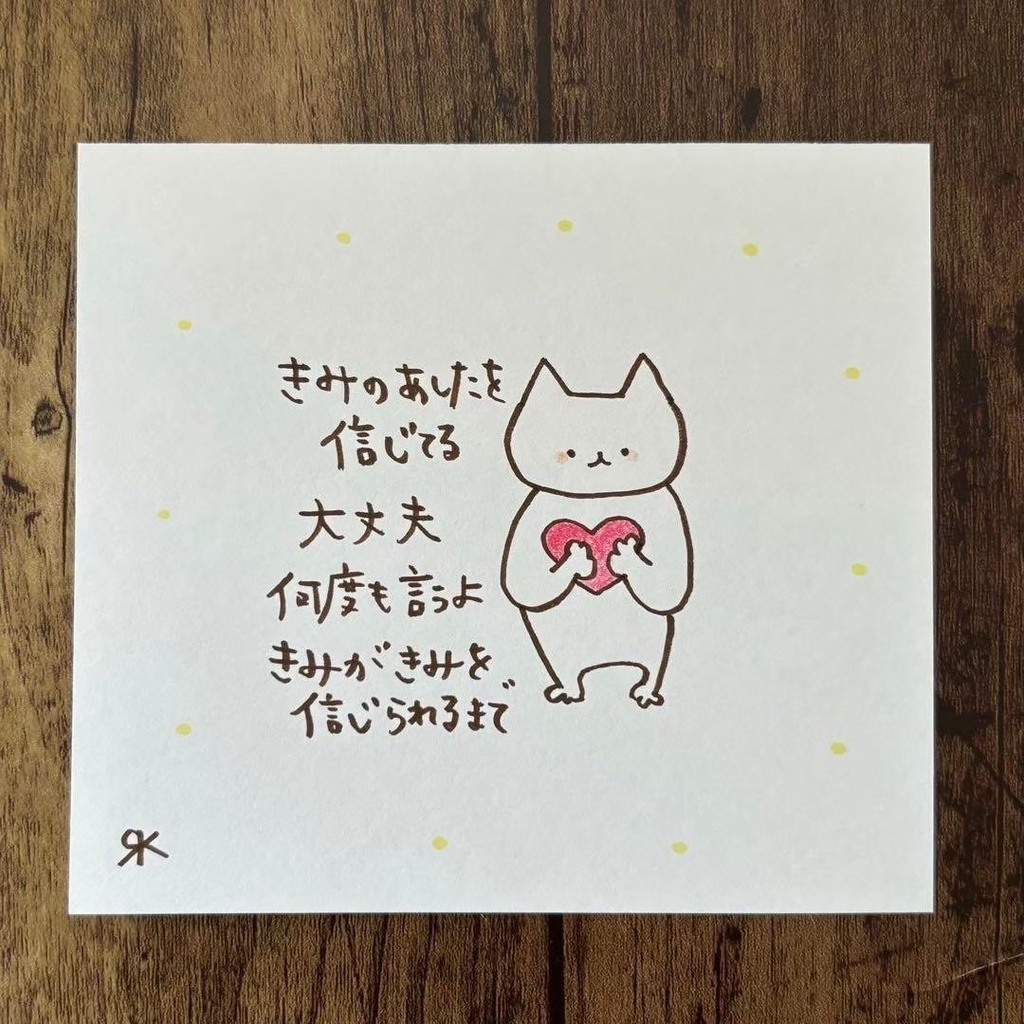 きみのあしたを
信じてる
大丈夫
何度も言うよ
きみがきみを
信じられるまで